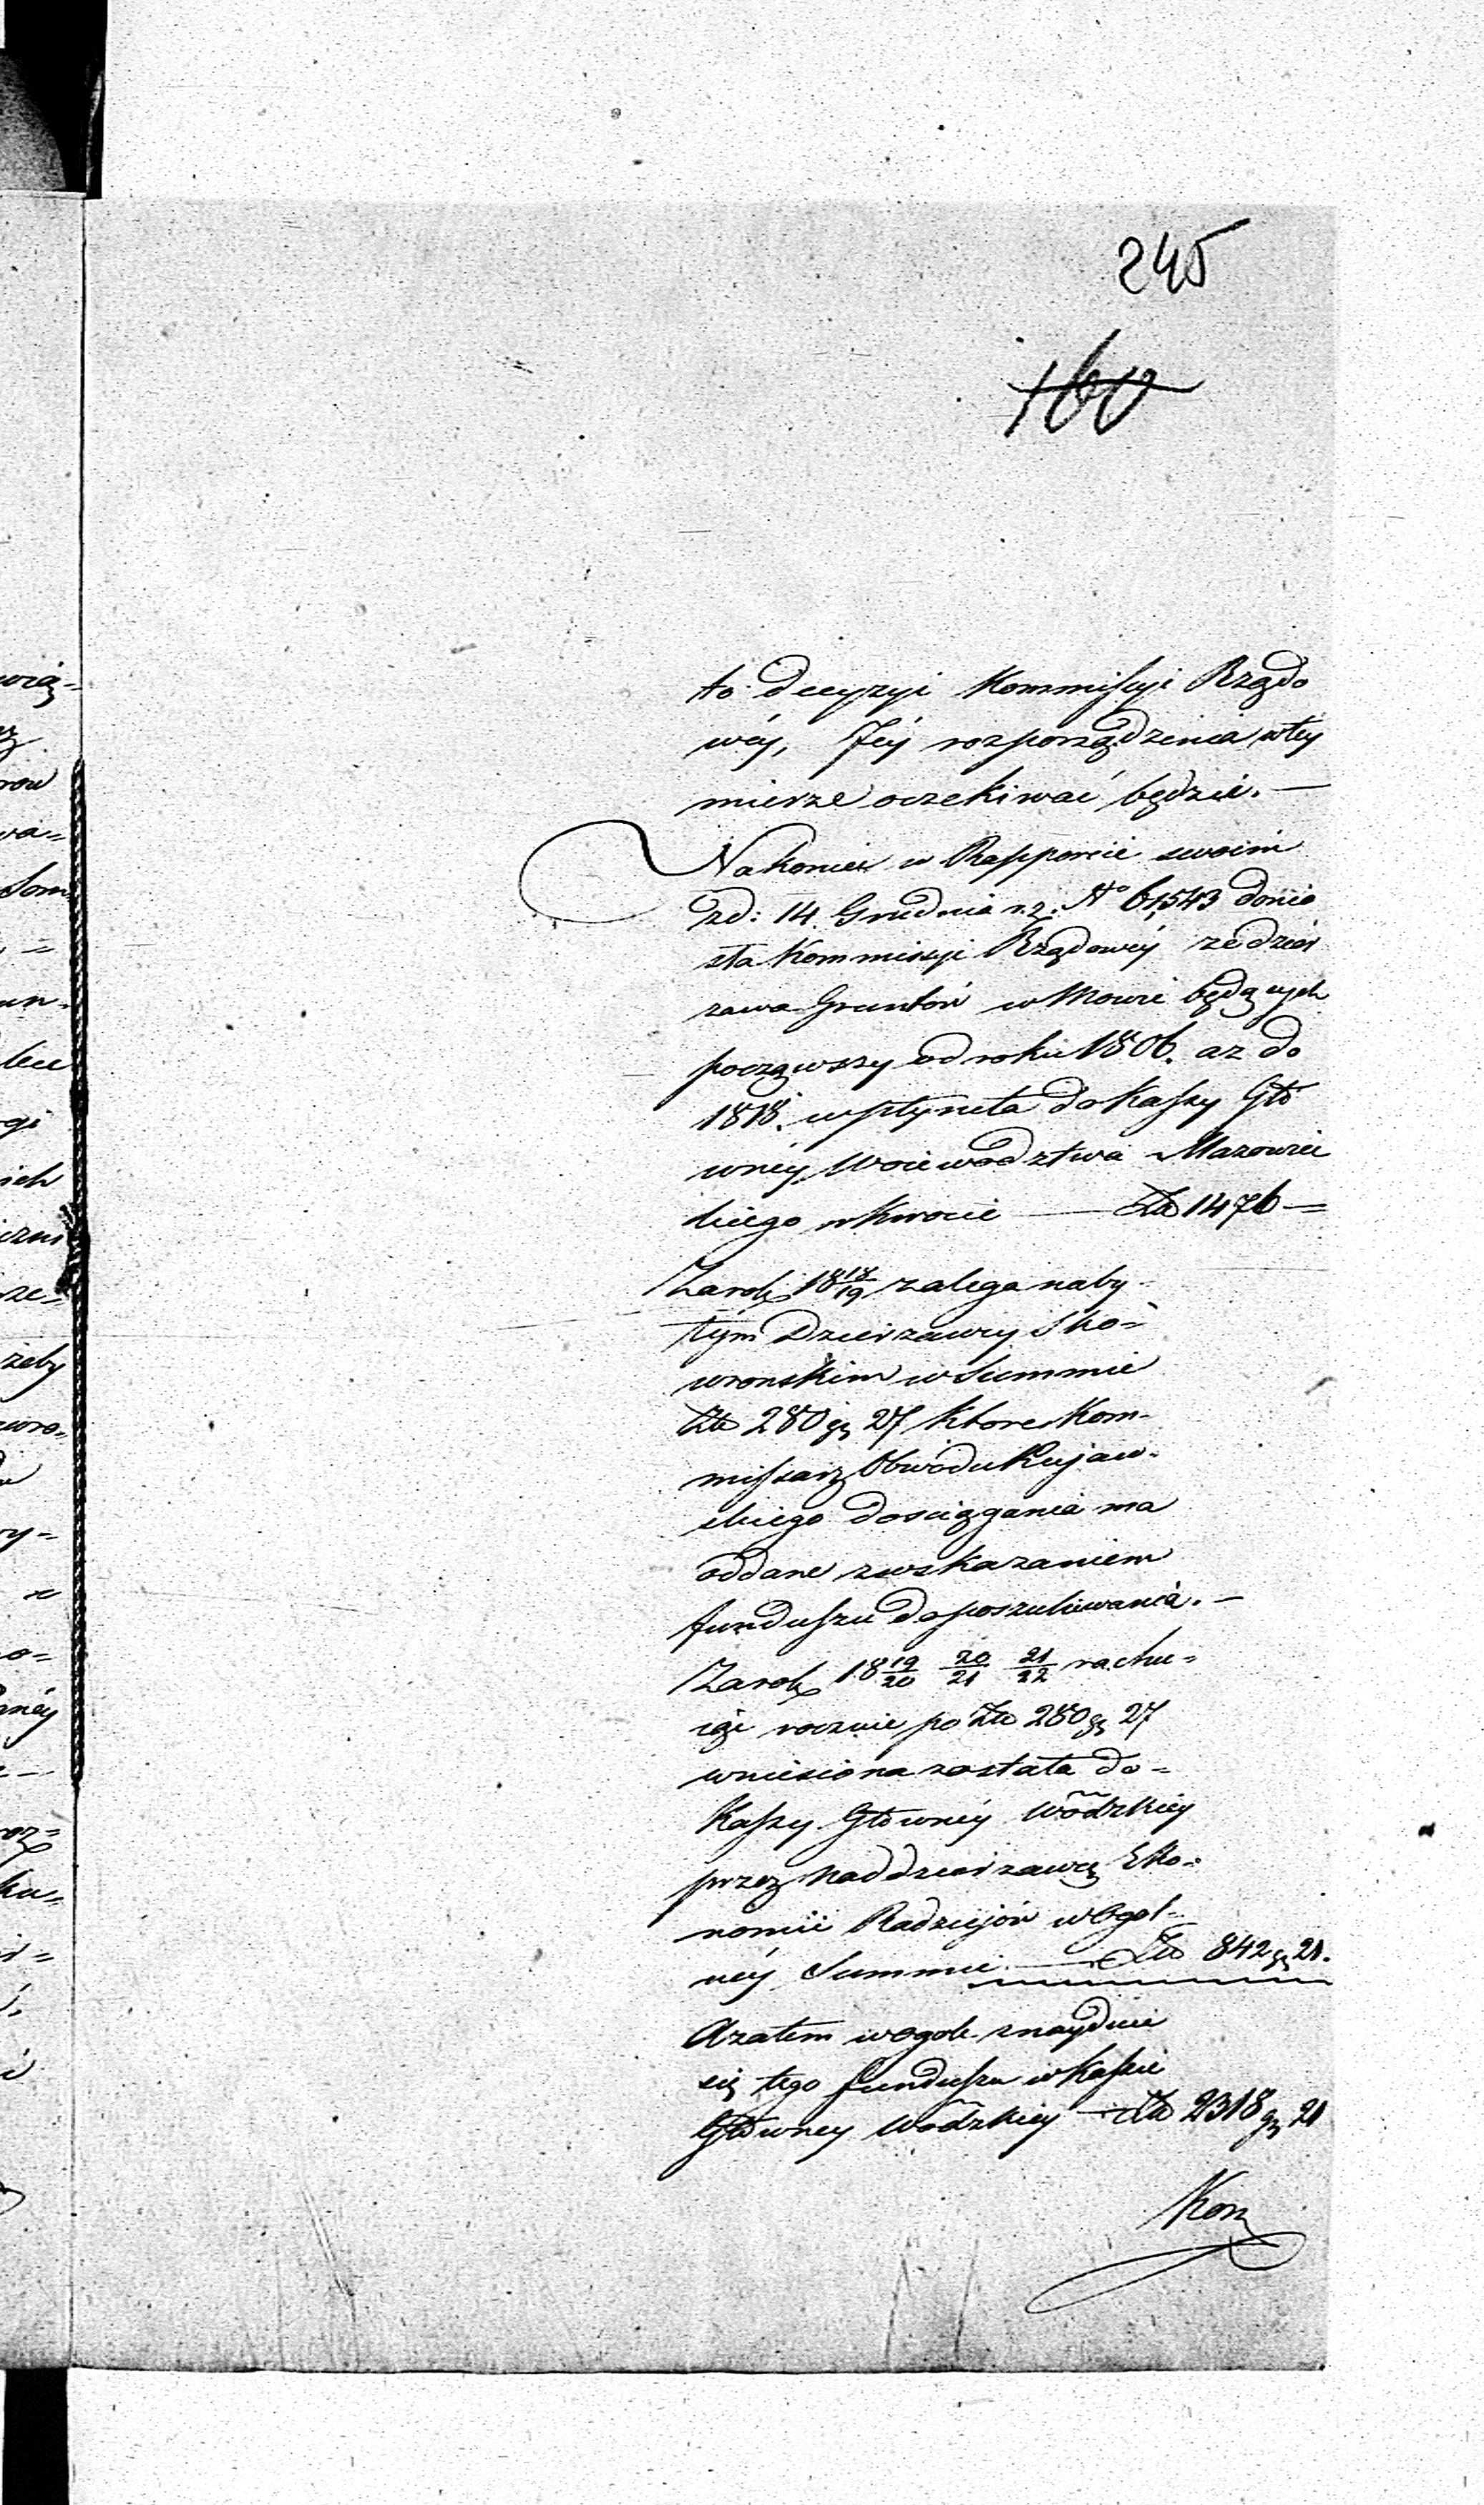 245
160
to decyzyi Kommissyi Rządo
wéy, Jéy rozporządzenia wtéy
mierze oczekiwać będzie. —
Nakoniec w Rapporcie swoim
zd: 14. Grudnia r. z. No 61543 donio
sła Kommissyi Rządowéy że dzier
zawa Gruntów w Mowie będących
począwszy od roku 1806. az do
1818. wpłyneła do Kassy Głó
wnéy Woiewództwa Mazowiec
kiego w kwocie — Złp 1476 =
Za rok 18 18/19 zalega na by-
łym Dzierzawcy Sko=
wronskim w Summie
Złp 280 gr 27 które Kom-
missarz Obwodu Kujaw-
skiego do sciągania ma
oddane z wskazaniem
funduszu do poszukiwania. —
Za rok 18 19/20 20/21 21/22 rachu=
iąc rocznie po Złp 280 gr 27
wniesiona została do=
Kassy Głównéy Wódzkiey
przez Naddzierzawcę Eko=
nomii Radziejów w Ogol-
néy Summie — Złp 842 gr 21.
A zatem w ogole znayduie
się tego funduszu w Kassie
Główney Wódzkiey — Złp 2318 gr 21
Kom
wią=
row
wa=
Som
=
un-
lece
ich
ze=
żeby
wro=
ry=
o=
néy
roz=
ku=